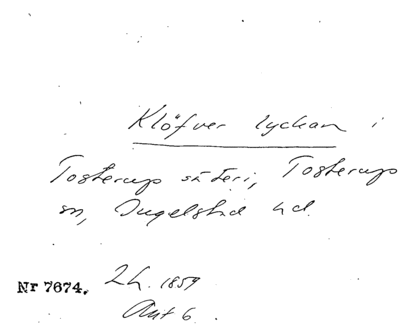 Klöfver lyckan i
Tosterup säteri, Tosterup
sn, Ingelstad hd.
Nr 7674. 2h. 1859
Akt 6.